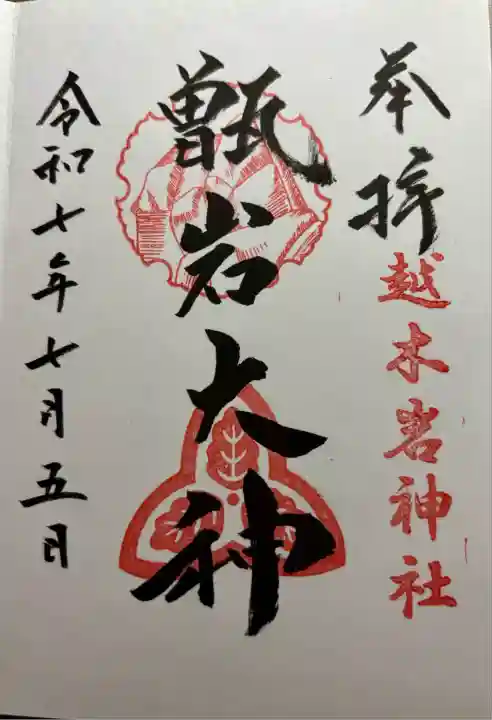 奉拝
越木岩神社
甑岩大神
令和七年七月五日